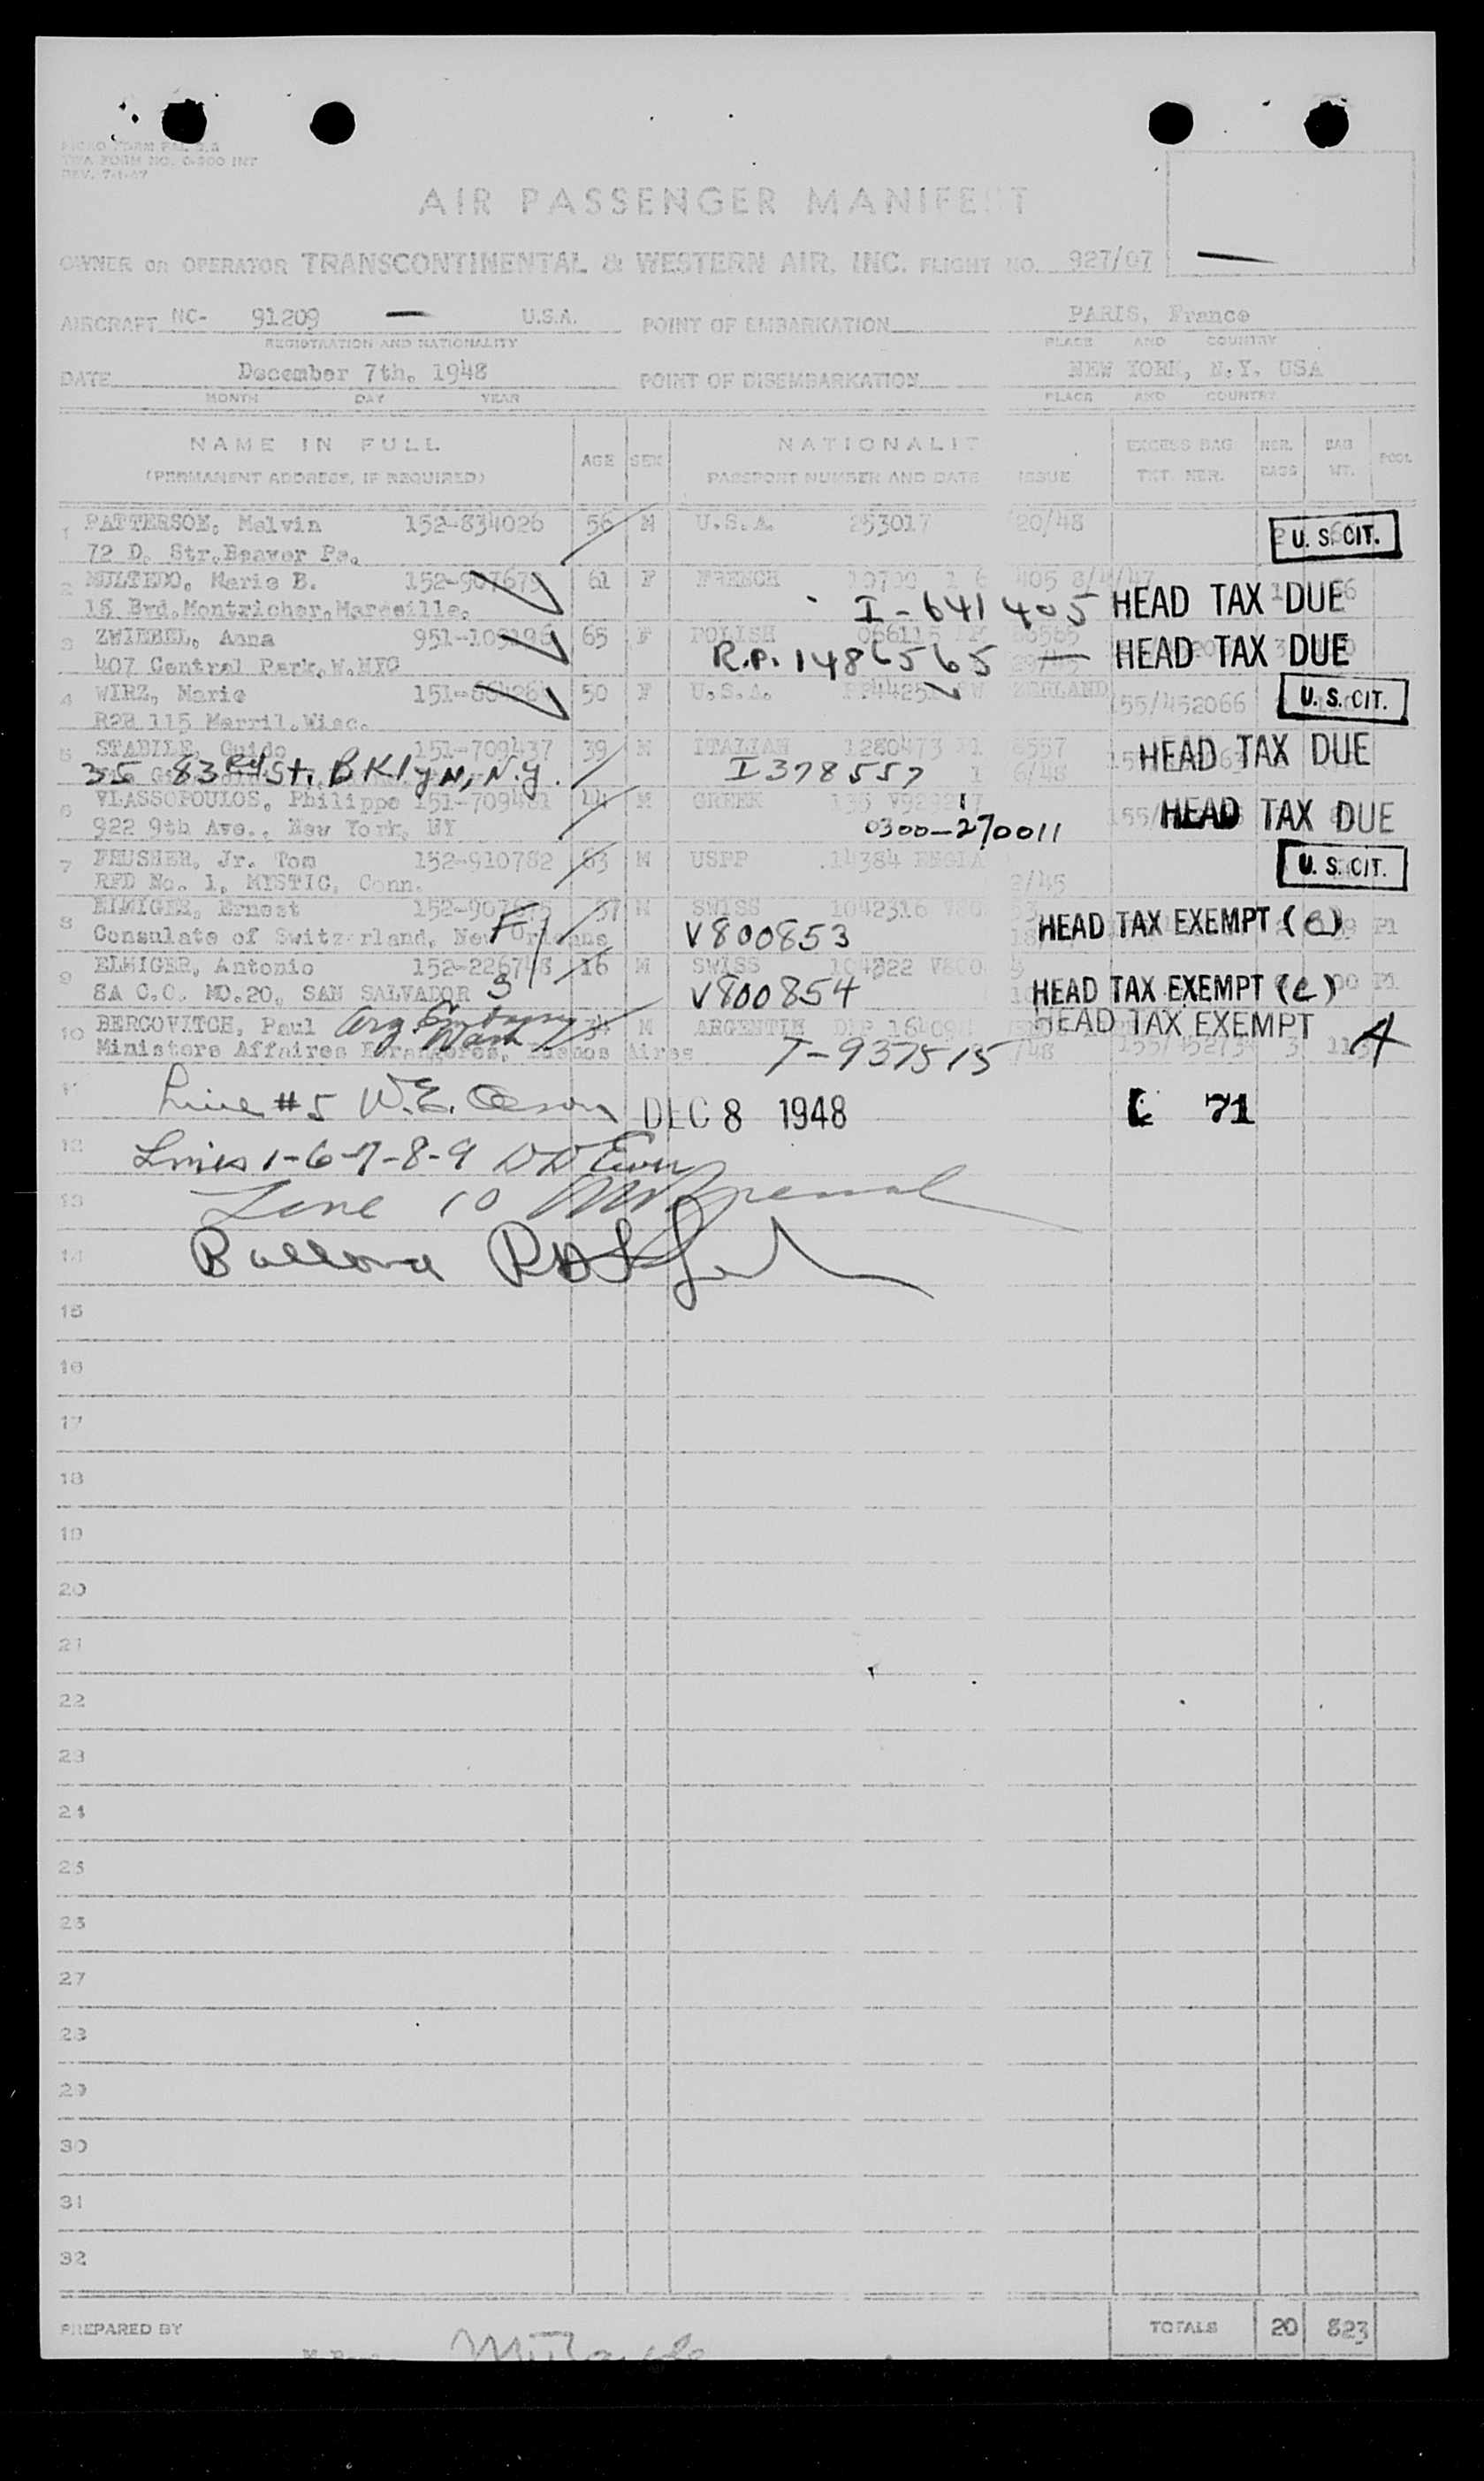 MICRO FORM
TWA FORM NO. 0-200 INT
REV. 7-1-47
AIR PASSENGER MANIFEST
OWNER OR OPERATOR TRANSCONTINENTAL & WESTERN AIR, INC. FLIGHT NO. 927/07
AIRCRAFT NC- 91209 — U.S.A. POINT OF EMBARKATION PARIS, France
REGISTRATION AND NATIONALITY PLACE AND COUNTRY
DATE December 7th, 1948 POINT OF DISEMBARKATION NEW YORK, N.Y. USA
MONTH DAY YEAR PLACE AND COUNTRY
NAME IN FULL AGE SEX NATIONALIT EXCESS BAG NBR. BAG POOL
(PERMANENT ADDRESS, IF REQUIRED) PASSPORT NUMBER AND DATE ISSUE TKT. NBR. BAGS WT.
1 PATTERSON, Melvin 152-834026 56 M U.S.A. 253017 20/48 U. S. CIT.
72 D. Str. Beaver Pa.
2 MULTEDO, Marie B. 152-907679 61 F FRENCH 405 8/4/47
15 Brd. Montricher, Marseille. I-641405 HEAD TAX DUE
3 ZWIEBEL, Anna 951-109196 65 F POLISH
407 Central Park, W. NYC R.P. 1486565 — HEAD TAX DUE
4 WIRZ, Marie 50 F U.S.A. 155/452066 U. S. CIT.
R2B 115 Merril. Wisc.
5 STABILE, Guido 151-709437 39 M ITALIAN 1280473 8557 HEAD TAX DUE
35 83rd St, BKlyn, N.Y. I378557 6/48
6 VLASSOPOULOS, Philippe 44 M GREEK HEAD TAX DUE
922 9th Ave., New York, NY 0300-270011
7 Jr. Tom 152-910782 63 M USPP 14384 U. S. CIT.
RFD No. 1, MYSTIC, Conn. 2/45
8 ELMIGER, Ernest 37 M SWISS 1042316 P1
Consulate of Switzerland, New Orleans V800853 HEAD TAX EXEMPT (e)
9 ELMIGER, Antonio 16 M SWISS
8A C.O. NO.20, SAN SALVADOR V800854 HEAD TAX EXEMPT (e)
10 BERCOVITCH, Paul Arg Embassy Wash 34 M ARGENTIN DIP HEAD TAX EXEMPT A
Ministere Affaires Etrangeres, Buenos Aires T-937515 /48 3 113
11 Line #5 W.E. DEC 8 1948 71
12 Lines 1-6-7-8-9
13 Line 10
14
15
16
17
18
19
20
21
22
23
24
25
26
27
28
29
30
31
32
PREPARED BY TOTALS 20 823